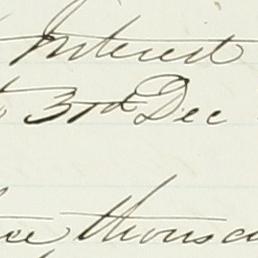 Interest
3rd Dec
thousa